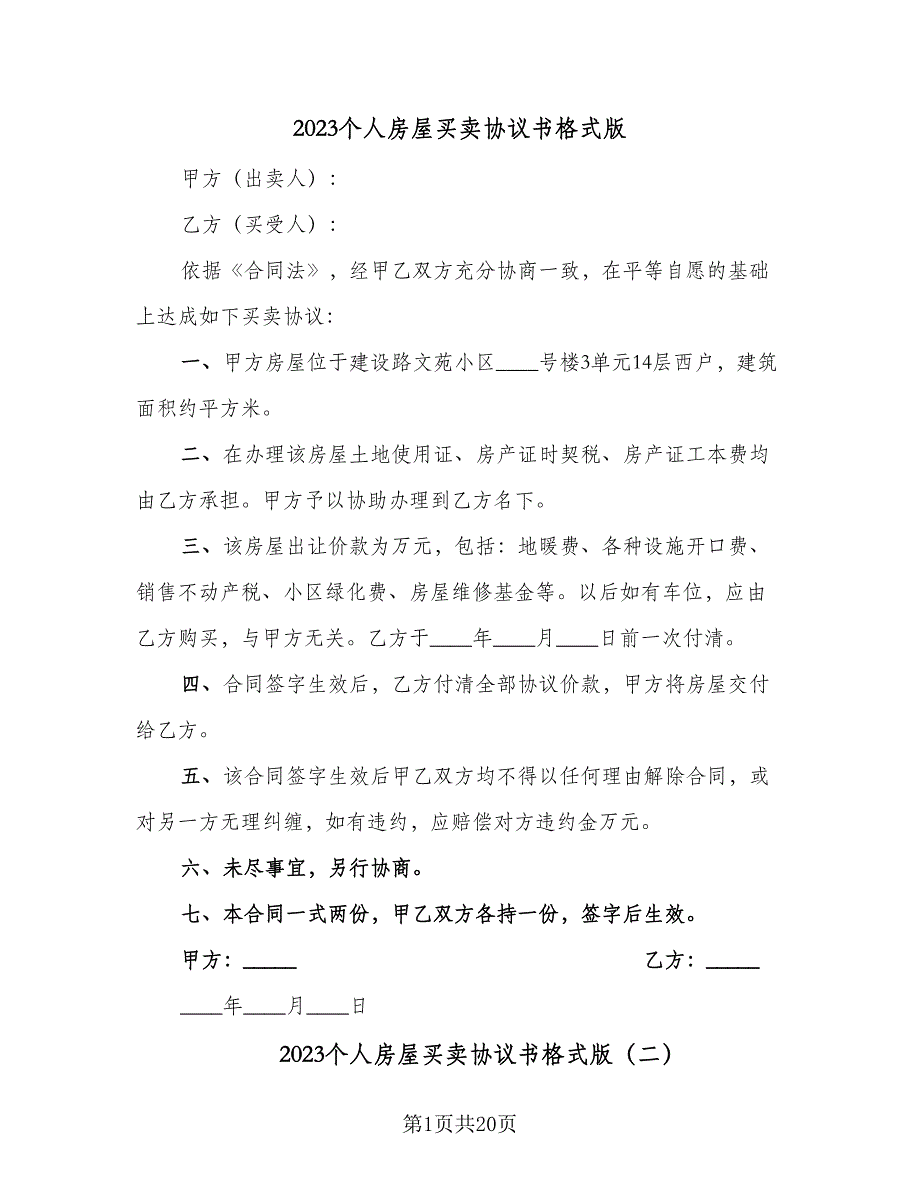 2023个人房屋买卖协议书格式版
甲方（出卖人）:
乙方（买受人）:
依据《合同法》, 经甲乙双方充分协商一致，在平等自愿的基础
上达成如下买卖协议:
一、甲方房屋位于建设路文苑小区____号楼3单元14层西户，建筑
面积约平方米。
二、在办理该房屋土地使用证、房产证时契税、房产证工本费均
由乙方承担。甲方予以协助办理到乙方名下。
三、该房屋出让价款为万元，包括: 地暖费、各种设施开口费、
销售不动产税、小区绿化费、房屋维修基金等。以后如有车位，应由
乙方购买，与甲方无关。乙方于____年____月____日前一次付清。
四、合同签字生效后，乙方付清全部协议价款，甲方将房屋交付
给乙方。
五、该合同签字生效后甲乙双方均不得以任何理由解除合同，或
对另一方无理纠缠，如有违约，应赔偿对方违约金万元。
六、未尽事宜，另行协商。
七、本合同一式两份，甲乙双方各持一份，签字后生效。
甲方: _____ 乙方: _____
____年____月____日
2023个人房屋买卖协议书格式版（二）
第1页共20页